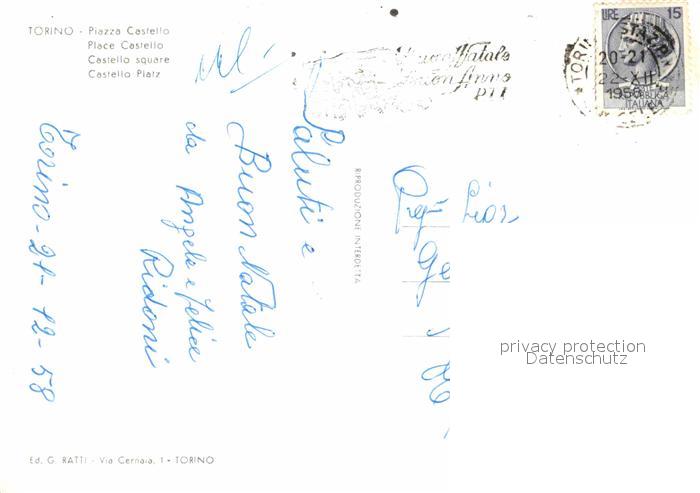 TORINO - Piazza Castello
Place Castello
Castello square
Castello Platz
Buon Natale
Buon Anno
PTT
LIRE 15
TORINO
STAZ.P
20-21
22-XII
1958
REPUBBLICA
ITALIANA
Saluti e
Buon Natale
da Angela e Felice
Ridoni
Torino-21-12-58
RIPRODUZIONE INTERDETTA
privacy protection
Datenschutz
Ed. G. RATTI - Via Cernaia, 1 - TORINO